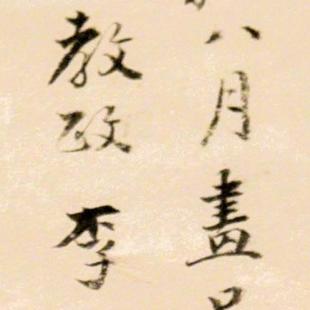 八月晝日
教政李